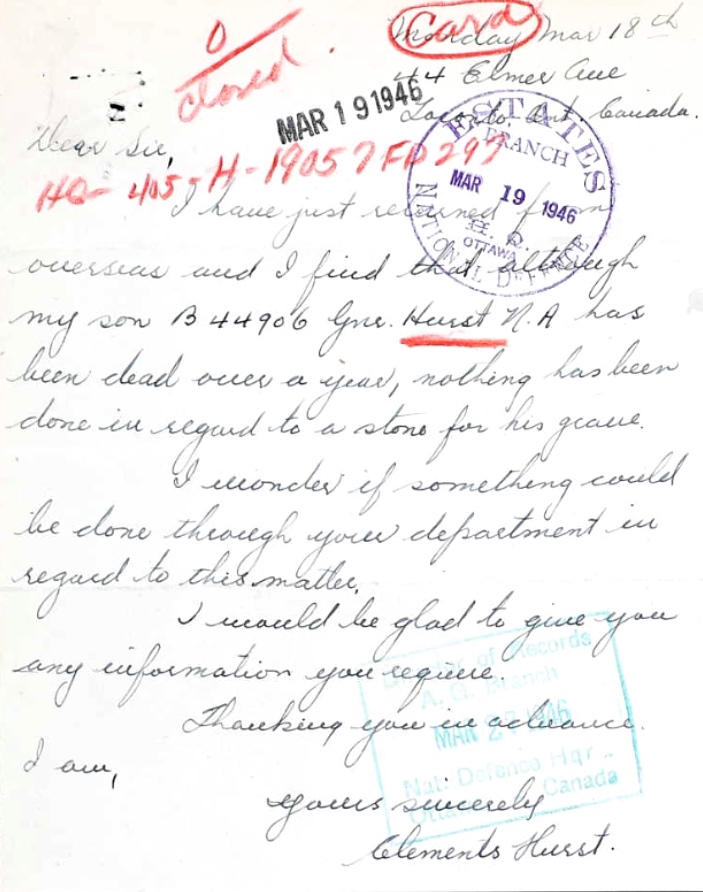 Card
0
closed
Monday Mar 18th
44 Elmer Ave
Toronto. Ont. Canada.
MAR 19 1946
ESTATES
BRANCH
MAR 19 1946
H. Q.
OTTAWA
NATIONAL DEFENCE
Dear Sir,
HQ- 405-H-19057 FD 297
I have just returned from
overseas and I find that, although
my son B 44906 Gnr. Hurst N.A has
been dead over a year, nothing has been
done in regard to a stone for his grave.
I wonder if something could
be done through your department in
regard to this matter.
I would be glad to give you
any information you require.
Thanking you in advance.
I am,
Yours sincerely
Clements Hurst.
Director of Records
A. G. Branch
MAR 27 1946
Nat: Defence Hqr..
Ottawa, Canada